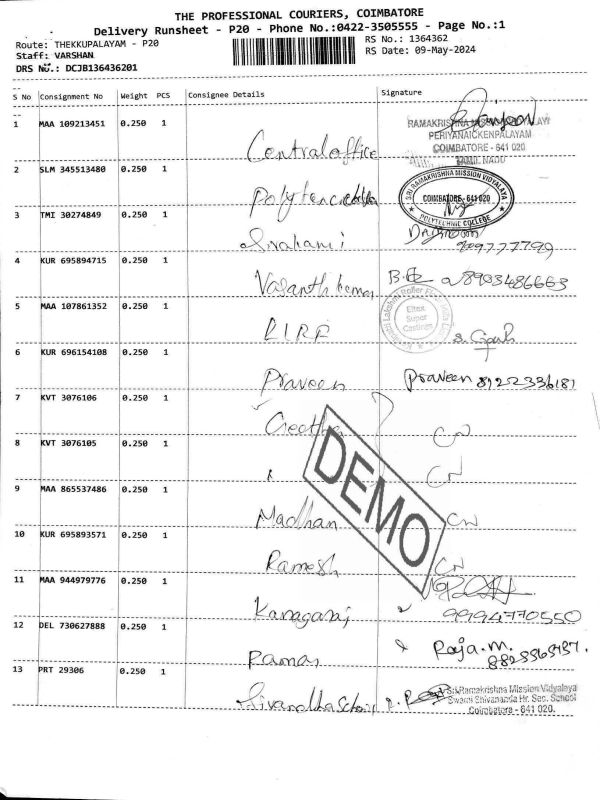 THE PROFESSIONAL COURIERS, COIMBATORE
Delivery Runsheet - P20 - Phone No.:0422-3505555 - Page No.:1
Route: THEKKUPALAYAM - P20
RS No.: 1364362
Staff: VARSHAN
RS Date: 09-May-2024
DRS No.: DCJB136436201
S No Consignment No Weight PCS Consignee Details Signature
1 MAA 109213451 0.250 1 Central office
RAMAKRISHNA MISSION VIDYALAYA
PERIYANAICKENPALAYAM
COIMBATORE - 641 020
TAMIL NADU
2 SLM 345513480 0.250 1
SRI RAMAKRISHNA MISSION VIDYALAYA
COIMBATORE - 641 020
POLYTECHNIC COLLEGE
3 TMI 30274849 0.250 1
4 KUR 695894715 0.250 1 Vasanthakumar 8903486663
5 MAA 107861352 0.250 1
Eltex
Super
Castings
6 KUR 696154108 0.250 1 Praveen Praveen 8122336181
7 KVT 3076106 0.250 1 Geetha CN
8 KVT 3076105 0.250 1 CN
9 MAA 865537486 0.250 1 Madhan CN
10 KUR 695893571 0.250 1 Ramesh CN
11 MAA 944979776 0.250 1 Kanagaraj 9994770550
12 DEL 730627888 0.250 1 Raman Raja.M.
13 PRT 29306 0.250 1
Sri Ramakrishna Mission Vidyalaya
Swami Shivananda Hr. Sec. School
Coimbatore - 641 020.
DEMO